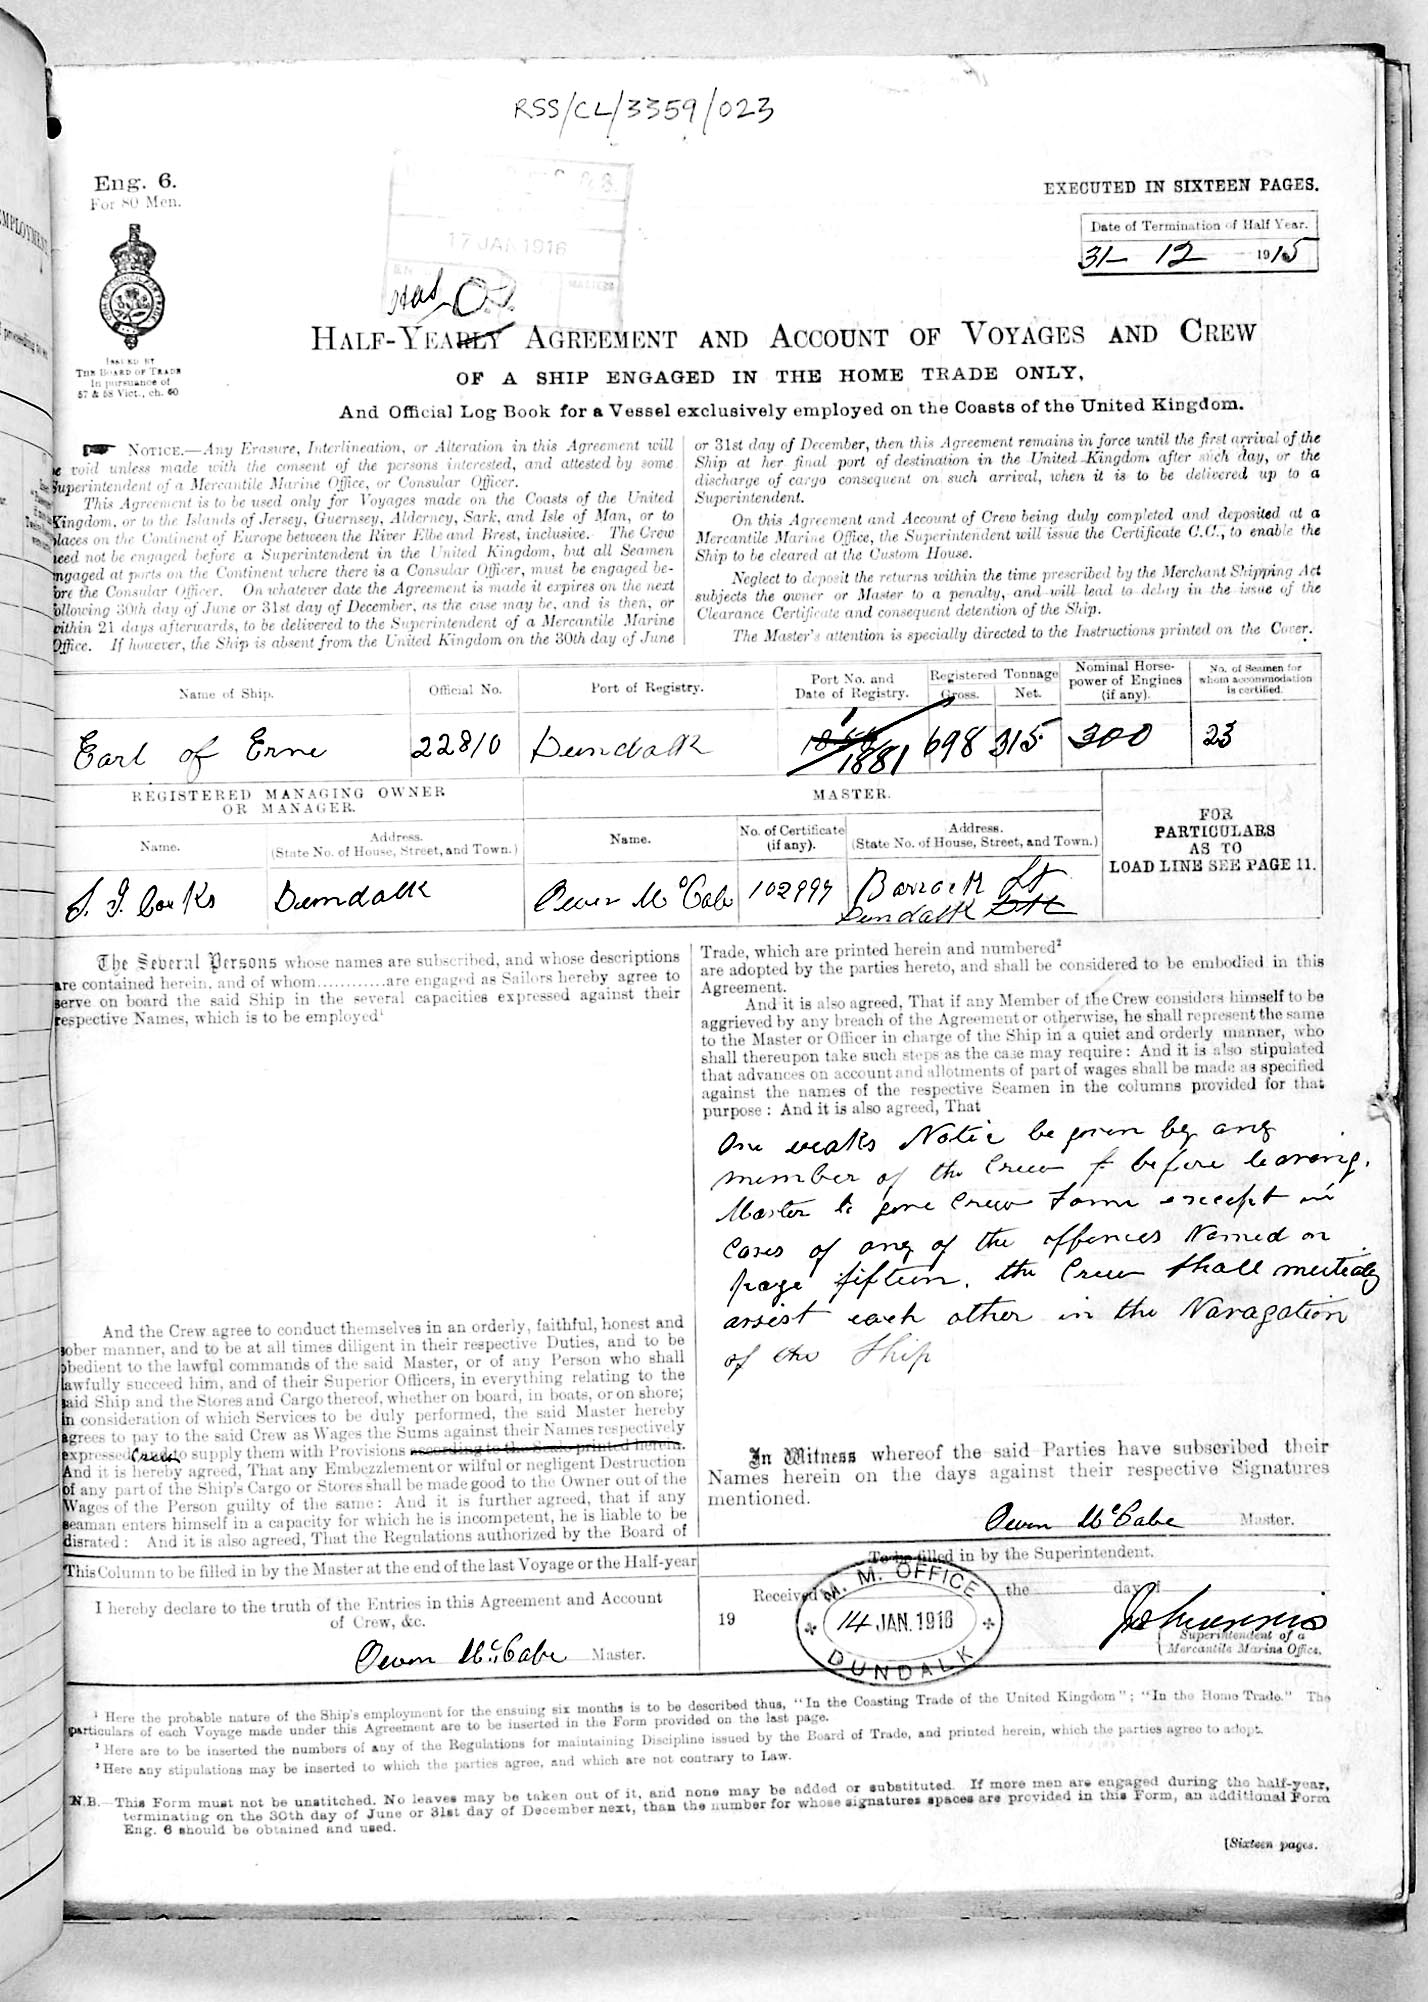 RSS/CL/3359/023
Eng. 6.
For 80 Men.
EXECUTED IN SIXTEEN PAGES.
Date of Termination of Half Year.
31- 12 - 1915
17 JAN 1916
ISSUED BY
THE BOARD OF TRADE
In pursuance of
57 & 58 Vict., ch. 60
HALF-YEARLY AGREEMENT AND ACCOUNT OF VOYAGES AND CREW
OF A SHIP ENGAGED IN THE HOME TRADE ONLY,
And Official Log Book for a Vessel exclusively employed on the Coasts of the United Kingdom.
NOTICE.—Any Erasure, Interlineation, or Alteration in this Agreement will
be void unless made with the consent of the persons interested, and attested by some
Superintendent of a Mercantile Marine Office, or Consular Officer.
This Agreement is to be used only for Voyages made on the Coasts of the United
Kingdom, or to the Islands of Jersey, Guernsey, Alderney, Sark, and Isle of Man, or to
places on the Continent of Europe between the River Elbe and Brest, inclusive. The Crew
need not be engaged before a Superintendent in the United Kingdom, but all Seamen
engaged at ports on the Continent where there is a Consular Officer, must be engaged be-
fore the Consular Officer. On whatever date the Agreement is made it expires on the next
following 30th day of June or 31st day of December, as the case may be, and is then, or
within 21 days afterwards, to be delivered to the Superintendent of a Mercantile Marine
Office. If however, the Ship is absent from the United Kingdom on the 30th day of June
or 31st day of December, then this Agreement remains in force until the first arrival of the
Ship at her final port of destination in the United Kingdom after such day, or the
discharge of cargo consequent on such arrival, when it is to be delivered up to a
Superintendent.
On this Agreement and Account of Crew being duly completed and deposited at a
Mercantile Marine Office, the Superintendent will issue the Certificate C.C., to enable the
Ship to be cleared at the Custom House.
Neglect to deposit the returns within the time prescribed by the Merchant Shipping Act
subjects the owner or Master to a penalty, and will lead to delay in the issue of the
Clearance Certificate and consequent detention of the Ship.
The Master's attention is specially directed to the Instructions printed on the Cover.
Name of Ship. Official No. Port of Registry. Port No. and Date of Registry. Registered Tonnage Gross. Net. Nominal Horse-power of Engines (if any). No. of Seamen for whom accommodation is certified.
Earl of Erne 22810 Dundalk 1/1881 698 315 300 23
REGISTERED MANAGING OWNER OR MANAGER. MASTER.
Name. Address. (State No. of House, Street, and Town.) Name. No. of Certificate (if any). Address. (State No. of House, Street, and Town.)
FOR
PARTICULARS
AS TO
LOAD LINE SEE PAGE 11.
Dundalk Owen McCabe 102997 Barrack St
Dundalk
The Several Persons whose names are subscribed, and whose descriptions
are contained herein, and of whom............are engaged as Sailors hereby agree to
serve on board the said Ship in the several capacities expressed against their
respective Names, which is to be employed¹
And the Crew agree to conduct themselves in an orderly, faithful, honest and
sober manner, and to be at all times diligent in their respective Duties, and to be
obedient to the lawful commands of the said Master, or of any Person who shall
lawfully succeed him, and of their Superior Officers, in everything relating to the
said Ship and the Stores and Cargo thereof, whether on board, in boats, or on shore;
in consideration of which Services to be duly performed, the said Master hereby
agrees to pay to the said Crew as Wages the Sums against their Names respectively
expressed Crew to supply them with Provisions according to the Scale printed herein.
And it is hereby agreed, That any Embezzlement or wilful or negligent Destruction
of any part of the Ship's Cargo or Stores shall be made good to the Owner out of the
Wages of the Person guilty of the same: And it is further agreed, that if any
seaman enters himself in a capacity for which he is incompetent, he is liable to be
disrated: And it is also agreed, That the Regulations authorized by the Board of
Trade, which are printed herein and numbered²
are adopted by the parties hereto, and shall be considered to be embodied in this
Agreement.
And it is also agreed, That if any Member of the Crew considers himself to be
aggrieved by any breach of the Agreement or otherwise, he shall represent the same
to the Master or Officer in charge of the Ship in a quiet and orderly manner, who
shall thereupon take such steps as the case may require: And it is also stipulated
that advances on account and allotments of part of wages shall be made as specified
against the names of the respective Seamen in the columns provided for that
purpose: And it is also agreed, That
One weaks Notice be given by any
member of the Crew before leaving.
Master to give Crew same except in
Cases of any of the offences Named on
page fifteen. the Crew shall mutialy
assist each other in the Navagation
of the Ship
In Witness whereof the said Parties have subscribed their
Names herein on the days against their respective Signatures
mentioned.
Owen McCabe Master.
This Column to be filled in by the Master at the end of the last Voyage or the Half-year
I hereby declare to the truth of the Entries in this Agreement and Account
of Crew, &c.
Owen McCabe Master.
To be filled in by the Superintendent.
Received the day
19
M. M. OFFICE
14 JAN. 1916
DUNDALK
Superintendent of a
Mercantile Marine Office.
¹ Here the probable nature of the Ship's employment for the ensuing six months is to be described thus, "In the Coasting Trade of the United Kingdom"; "In the Home Trade." The
particulars of each Voyage made under this Agreement are to be inserted in the Form provided on the last page.
² Here are to be inserted the numbers of any of the Regulations for maintaining Discipline issued by the Board of Trade, and printed herein, which the parties agree to adopt.
³ Here any stipulations may be inserted to which the parties agree, and which are not contrary to Law.
N.B.—This Form must not be unstitched. No leaves may be taken out of it, and none may be added or substituted. If more men are engaged during the half-year,
terminating on the 30th day of June or 31st day of December next, than the number for whose signatures spaces are provided in this Form, an additional Form
Eng. 6 should be obtained and used.
[Sixteen pages.